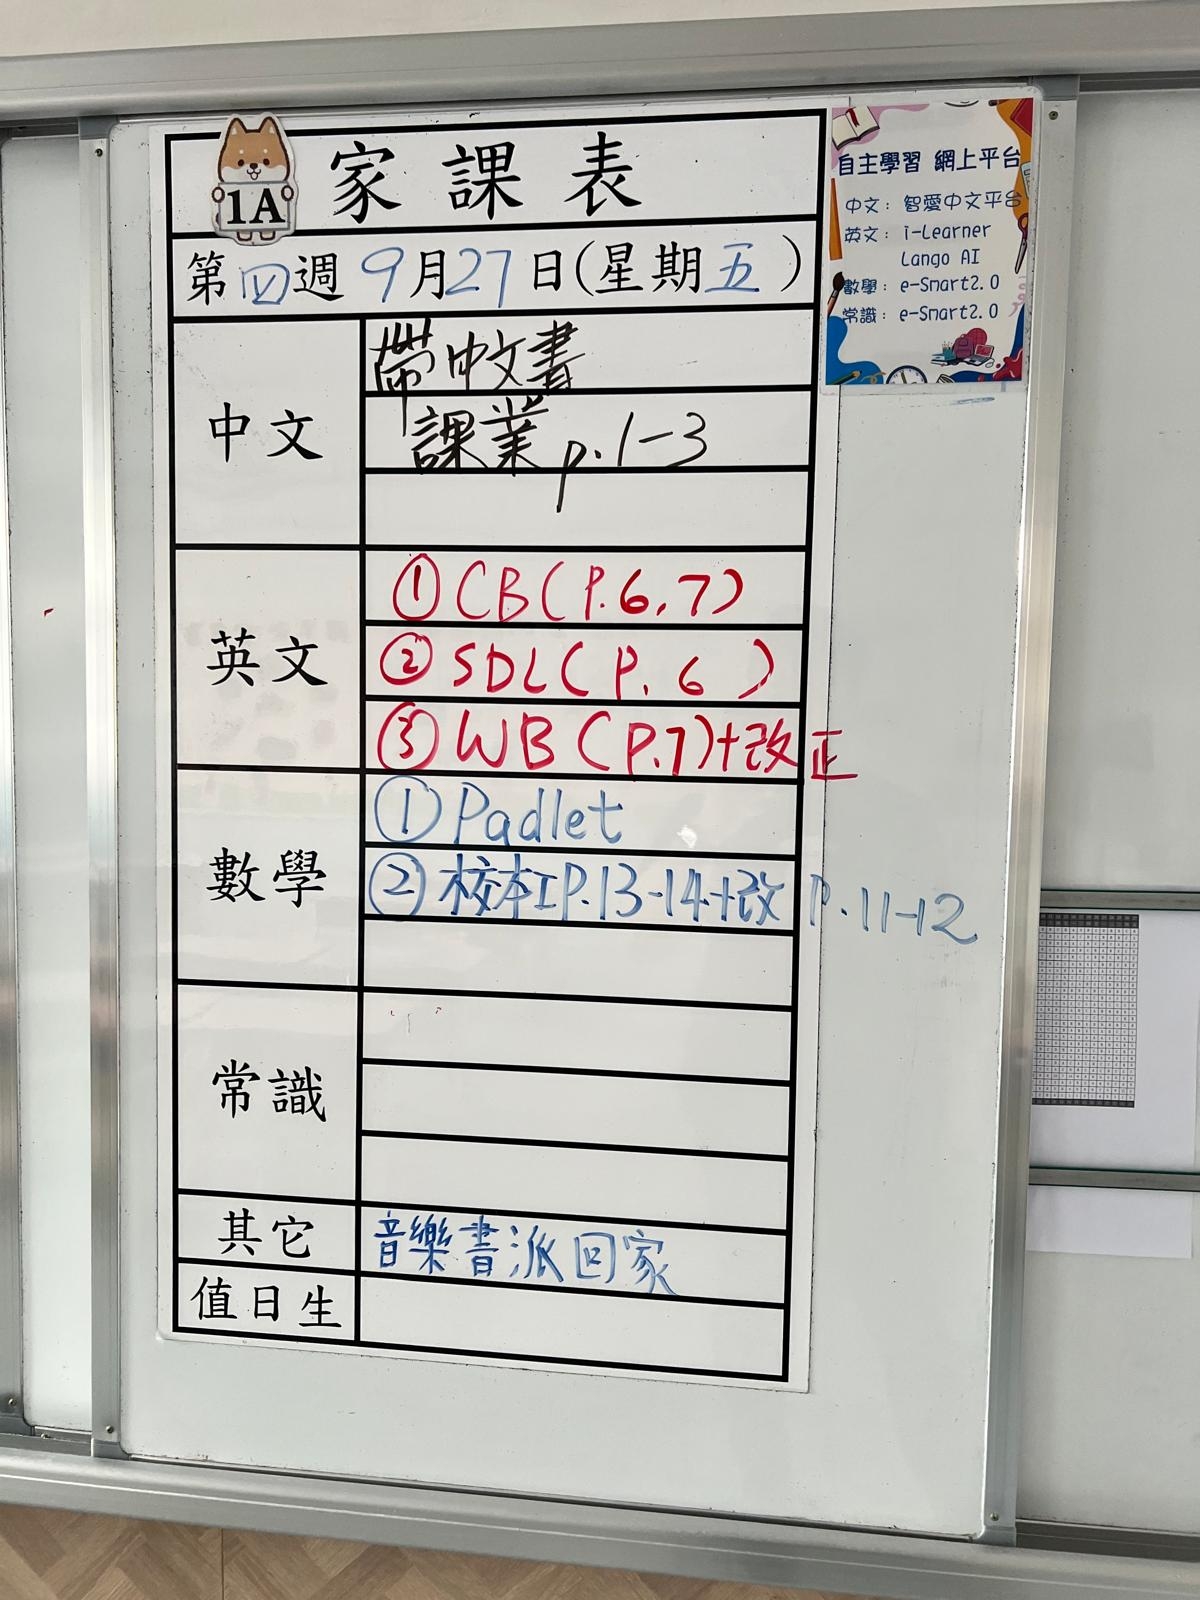 1A 家課表
第四週 9月27日(星期五)
中文
帶中文書
課業 p.1-3
英文
① CB (P.6,7)
② SDL (P.6)
③ WB (P.7)+改正
數學
① Padlet
② 校本工P.13-14+改 P.11-12
常識
其它
音樂書派回家
值日生
自主學習 網上平台
中文：智愛中文平台
英文：i-Learner
Lango AI
數學：e-Smart2.0
常識：e-Smart2.0